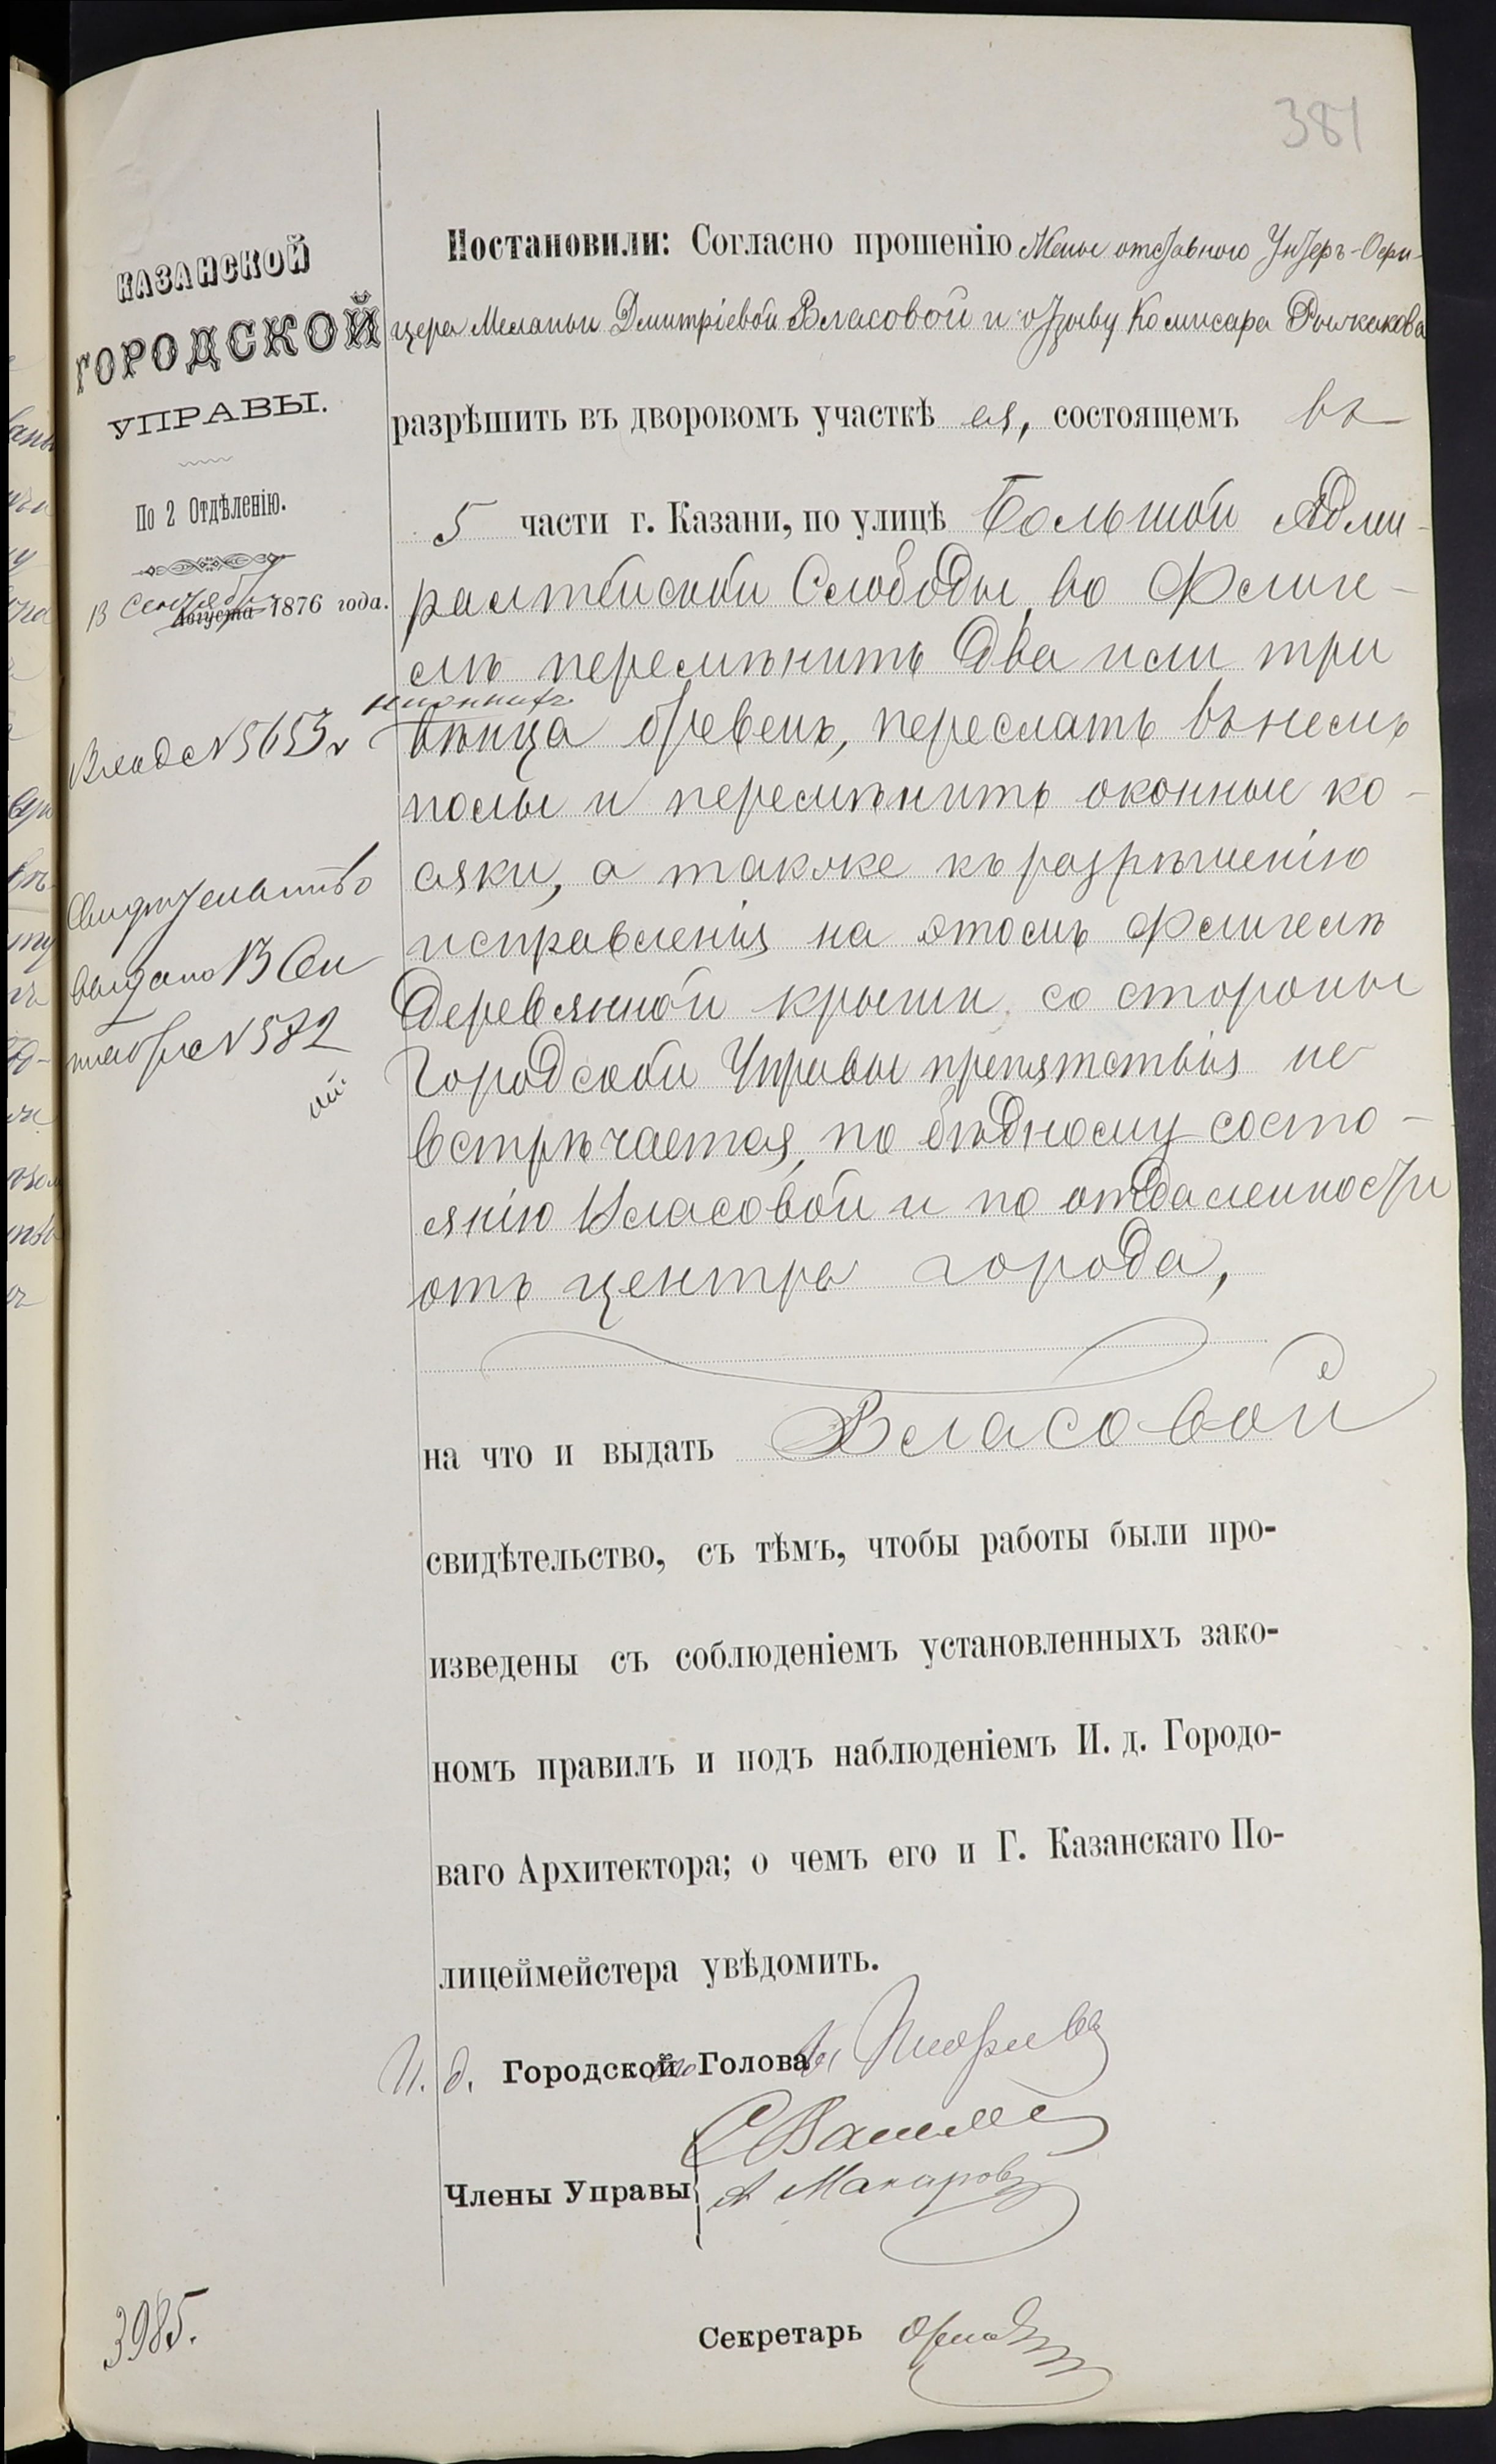 381
КАЗАНСКОЙ
ГОРОДСКОЙ
УПРАВЫ.
По 2 Отдѣленію.
13 Сентября
Августа 1876 года.
В клад № 5653
Свидѣтельство
выдано 13 Сен
тября № 582
Постановили: Согласно прошенію Жены отставного Унтеръ-Офи-
цера Меланьи Дмитріевой Власовой и отзыву Комисара
разрѣшить въ дворовомъ участкѣ ея, состоящемъ въ
5 части г. Казани, по улицѣ Большой Адми-
ралтейской Слободы, во флиге-
лѣ перемѣнить два или три
нижнихъ
вѣнца бревенъ, переслать въ немъ
полы и перемѣнить оконные ко-
сяки, а также къ разрѣшенію
исправленія на этомъ флигелѣ
деревянной крыши, со стороны
Городской Управы препятствія не
встрѣчается, по бѣдному состо-
янію Власовой и по отдаленности
отъ центра города,
на что и выдать Власовой
свидѣтельство, съ тѣмъ, чтобы работы были про-
изведены съ соблюденіемъ установленныхъ зако-
номъ правилъ и подъ наблюденіемъ И. д. Городо-
ваго Архитектора; о чемъ его и Г. Казанскаго По-
лицеймейстера увѣдомить.
И. д. Городской Голова
Члены Управы
А Макаровъ
Секретарь
3985.